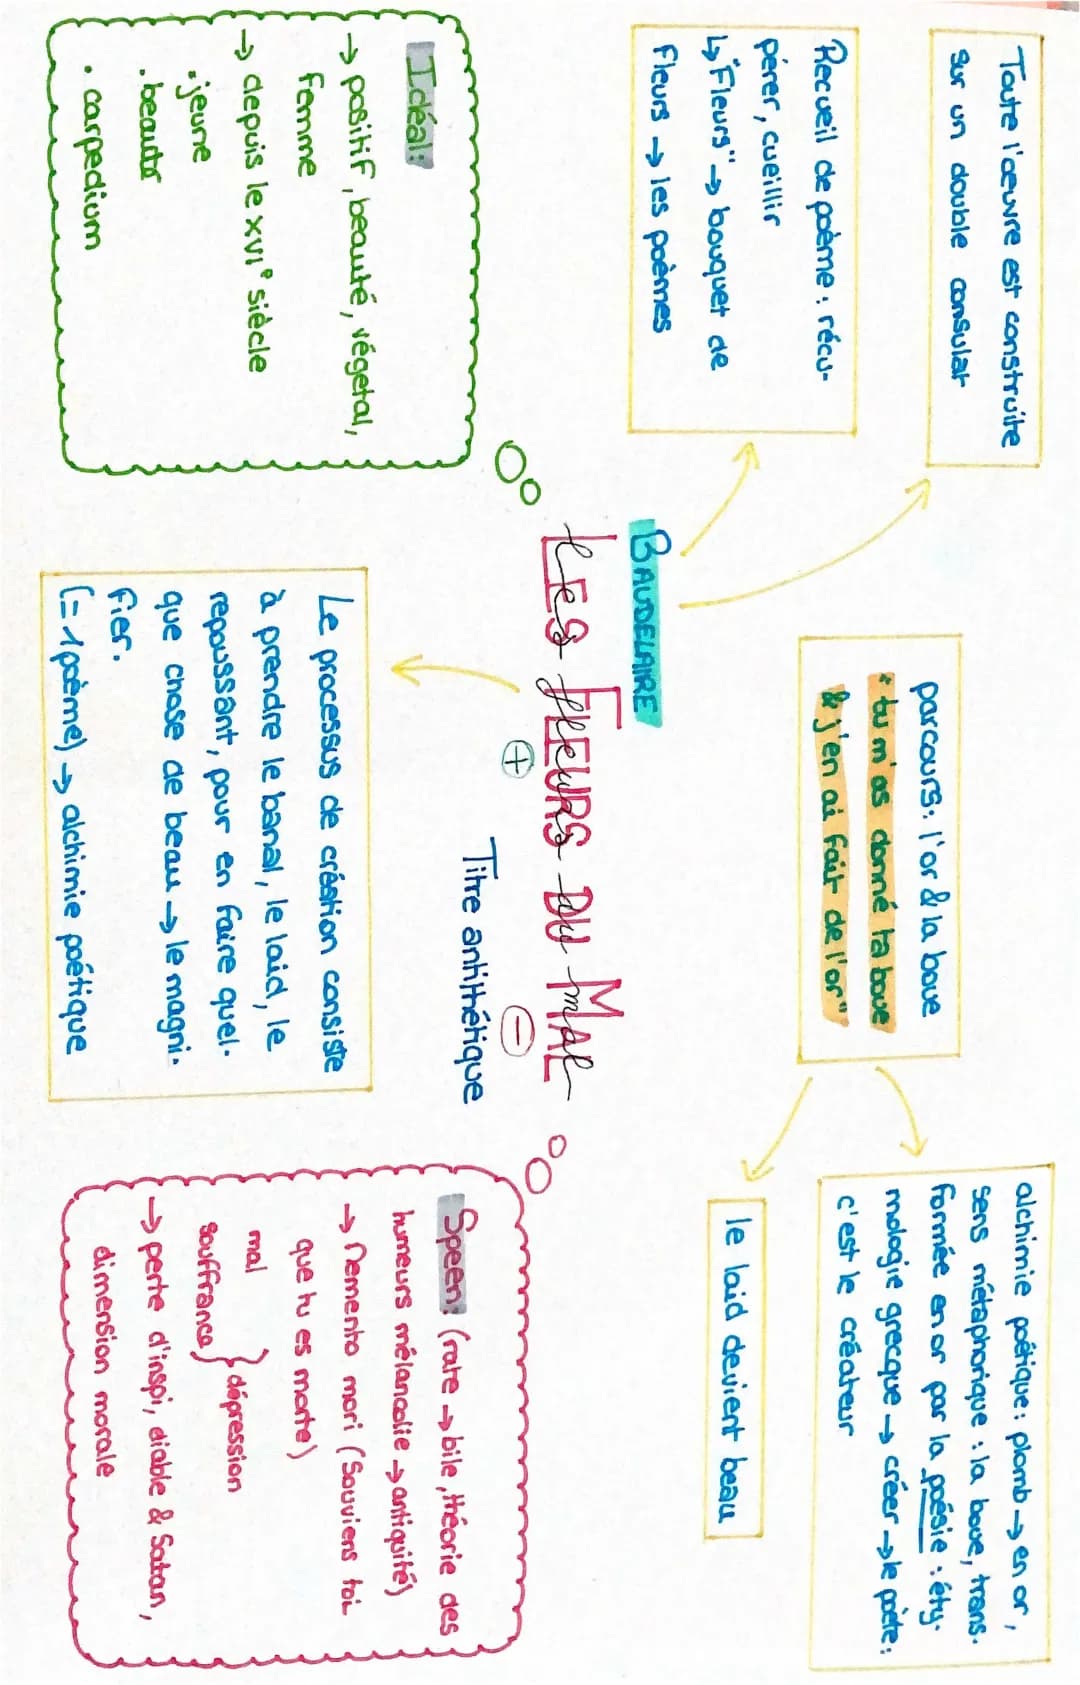 Toute l'œuvre est construite
sur un double consulat
Recueil de poème : récu-
pérer, cueillir
↳ "Fleurs" → bouquet de
fleurs → les poèmes
parcours: l'or & la boue
"tu m'as donné ta boue
& j'en ai fait de l'or"
alchimie poétique: plomb → en or,
sens métaphorique : la boue, trans-
formée en or par la poésie : éty-
mologie grecque → créer → le poète:
c'est le créateur
le laid devient beau
BAUDELAIRE
LES FLEURS DU MAL
les fleurs du mal
+
-
Titre antithétique
Idéal:
→ positif, beauté, végetal,
femme
→ depuis le XVI° siècle
. jeune
. beauté
. carpedium
Le processus de création consiste
à prendre le banal, le laid, le
repoussant, pour en faire quel-
que chose de beau → le magni-
fier.
(= 1 poème) → alchimie poétique
Speen: (rate → bile, théorie des
humeurs mélancolie → antiquité)
→ Memento mori (Souviens toi
que tu es morte)
mal
souffrance } dépression
→ perte d'inspi, diable & Satan,
dimension morale